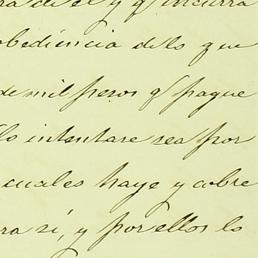 ra de el y q͛ incurra
obediencia de lo que
de mil pesos q͛ pague
lo intentare sea por
cuales haye y cobre
ra sí, y por ellos lo